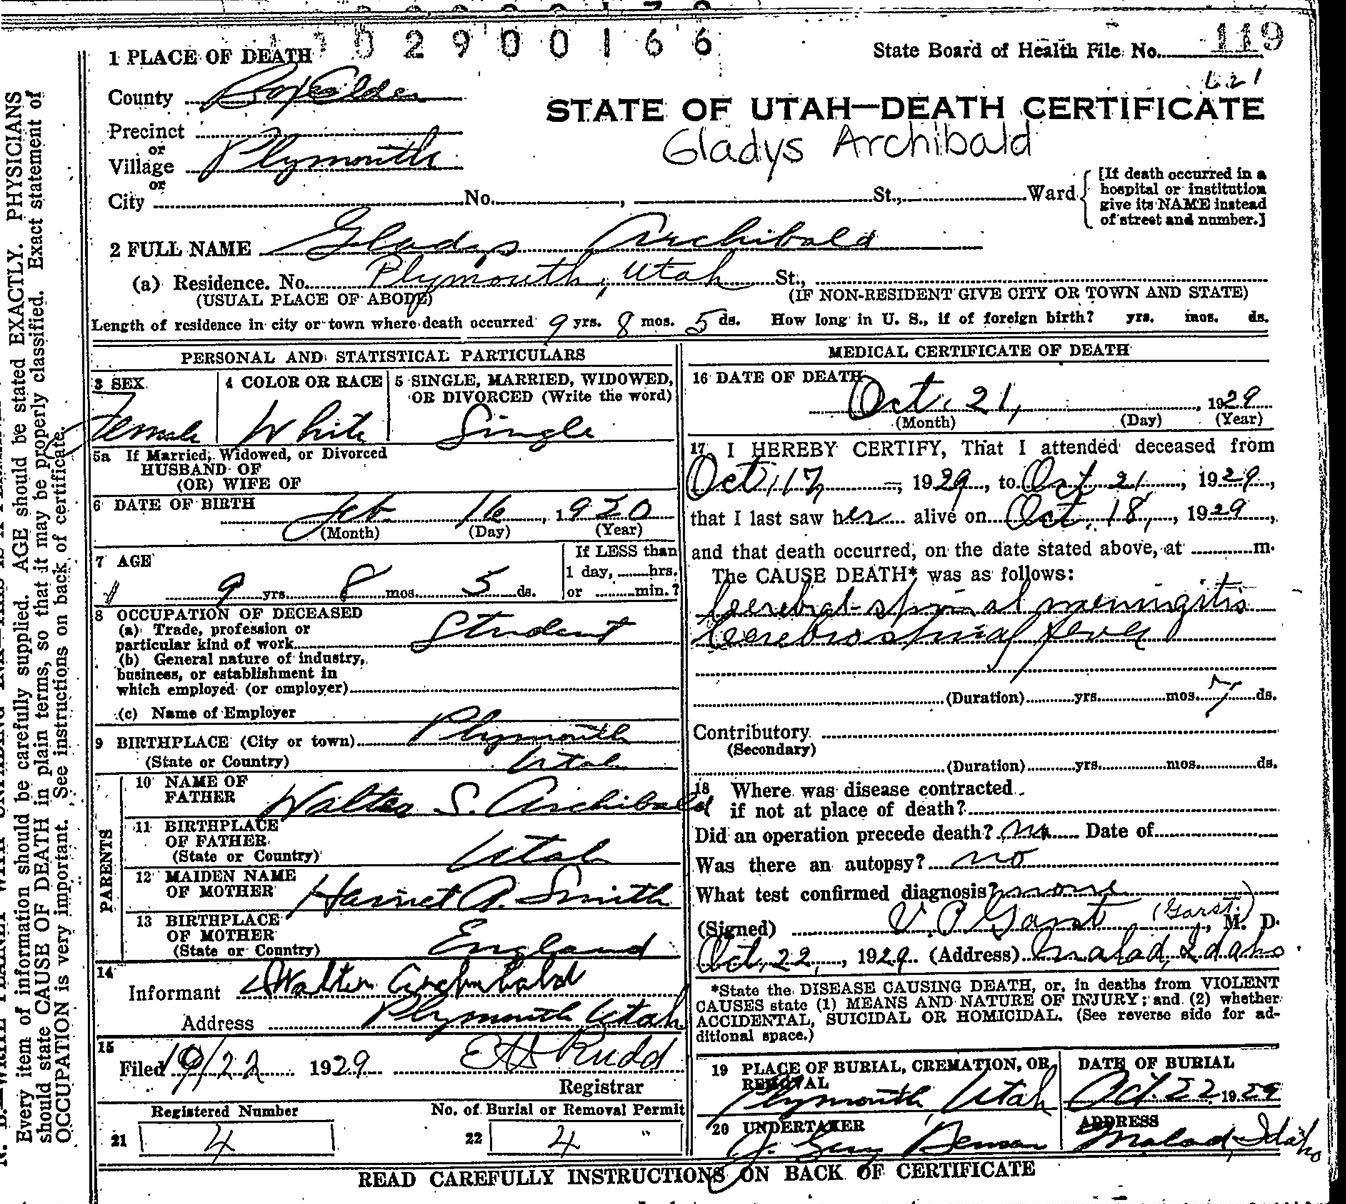 02900166
State Board of Health File No. 119
1 PLACE OF DEATH
County Box Elder
STATE OF UTAH—DEATH CERTIFICATE
Precinct
or
Village Plymouth
Gladys Archibald
or
City No. , St., Ward
[If death occurred in a
hospital or institution
give its NAME instead
of street and number.]
2 FULL NAME Gladys Archibald
(a) Residence. No. Plymouth, Utah St.,
(USUAL PLACE OF ABODE) (IF NON-RESIDENT GIVE CITY OR TOWN AND STATE)
Length of residence in city or town where death occurred 9 yrs. 8 mos. 5 ds. How long in U. S., if of foreign birth? yrs. mos. ds.
PERSONAL AND STATISTICAL PARTICULARS
3 SEX
Female
4 COLOR OR RACE
White
5 SINGLE, MARRIED, WIDOWED,
OR DIVORCED (Write the word)
Single
5a If Married, Widowed, or Divorced
HUSBAND OF
(OR) WIFE OF
6 DATE OF BIRTH Feb. 16, 1920
(Month) (Day) (Year)
7 AGE
9 yrs. 8 mos. 5 ds.
If LESS than
1 day, hrs.
or min.?
8 OCCUPATION OF DECEASED
(a) Trade, profession or
particular kind of work Student
(b) General nature of industry,
business, or establishment in
which employed (or employer)
(c) Name of Employer
9 BIRTHPLACE (City or town) Plymouth
(State or Country) Utah
PARENTS
10 NAME OF
FATHER Walter S. Archibald
11 BIRTHPLACE
OF FATHER
(State or Country) Utah
12 MAIDEN NAME
OF MOTHER Harriet A. Smith
13 BIRTHPLACE
OF MOTHER
(State or Country) England
14
Informant Walter Archibald
Address Plymouth Utah
15
Filed 10/22 1929 E H Rudd
Registrar
Registered Number
21 4
No. of Burial or Removal Permit
22 4 "
MEDICAL CERTIFICATE OF DEATH
16 DATE OF DEATH
Oct. 21, , 1929
(Month) (Day) (Year)
17 I HEREBY CERTIFY, That I attended deceased from
Oct. 17, , 1929, to Oct. 21, , 1929,
that I last saw her alive on Oct. 18, , 1929,
and that death occurred, on the date stated above, at m.
The CAUSE DEATH* was as follows:
Cerebral-spinal meningitis
Cerebrospinal fever
(Duration) yrs. mos. 7 ds.
Contributory
(Secondary)
(Duration) yrs. mos. ds.
18 Where was disease contracted
if not at place of death?
Did an operation precede death? No Date of
Was there an autopsy? no
What test confirmed diagnosis? none
(Signed) V. P. Garst (Garst.), M. D.
Oct. 22, , 1929. (Address) Malad, Idaho.
*State the DISEASE CAUSING DEATH, or, in deaths from VIOLENT
CAUSES state (1) MEANS AND NATURE OF INJURY; and (2) whether
ACCIDENTAL, SUICIDAL OR HOMICIDAL. (See reverse side for ad-
ditional space.)
19 PLACE OF BURIAL, CREMATION, OR
REMOVAL
Plymouth, Utah
DATE OF BURIAL
Oct. 22 1929
20 UNDERTAKER
J. Guy Benson
ADDRESS
Malad, Idaho
READ CAREFULLY INSTRUCTIONS ON BACK OF CERTIFICATE
Every item of information should be carefully supplied. AGE should be stated EXACTLY. PHYSICIANS
should state CAUSE OF DEATH in plain terms, so that it may be properly classified. Exact statement of
OCCUPATION is very important. See instructions on back of certificate.